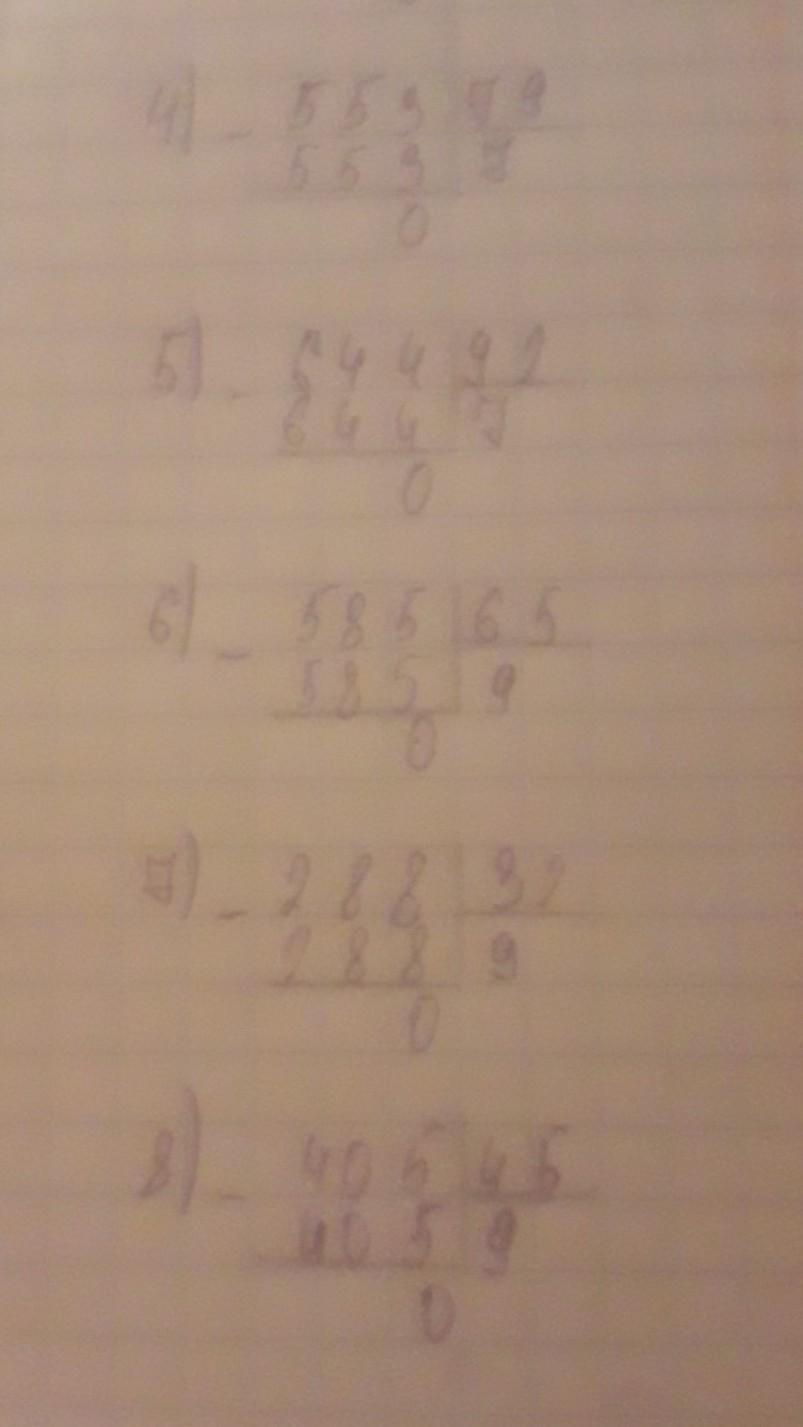 4) - 553 79
553 7
0
5) - 644 92
644 7
0
6) - 585 65
585 9
0
7) - 288 32
288 9
0
8) - 405 45
405 9
0